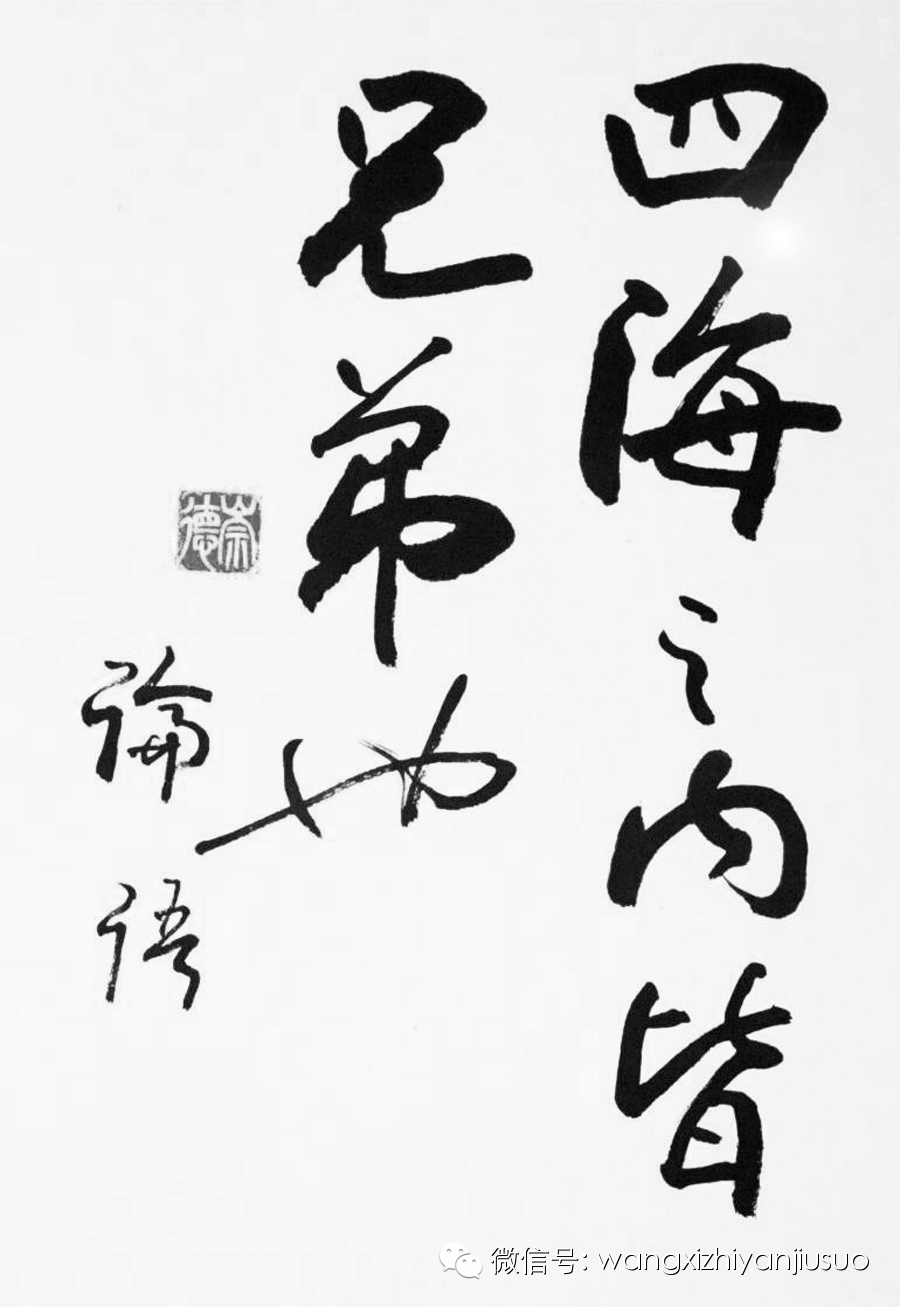 四海之内皆
兄弟也
崇德
論語
微信号：wangxizhiyanjiusuo